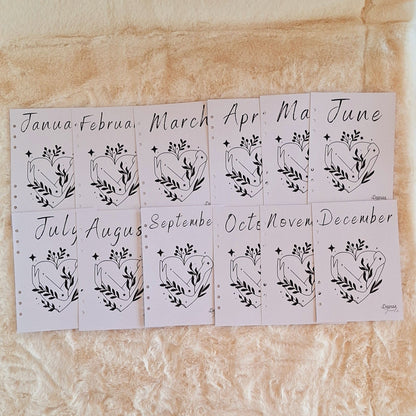 Janua
Februa
March
Apr
Ma
June
July
Augus
Septembe
Octo
Novem
December